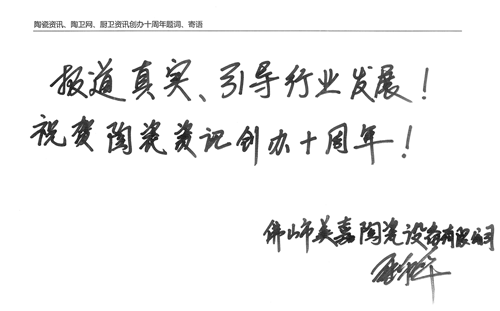 陶瓷资讯、陶卫网、厨卫资讯创办十周年题词、寄语
报道真实、引导行业发展！
祝贺陶瓷资讯创办十周年！
佛山市美嘉陶瓷设备有限公司